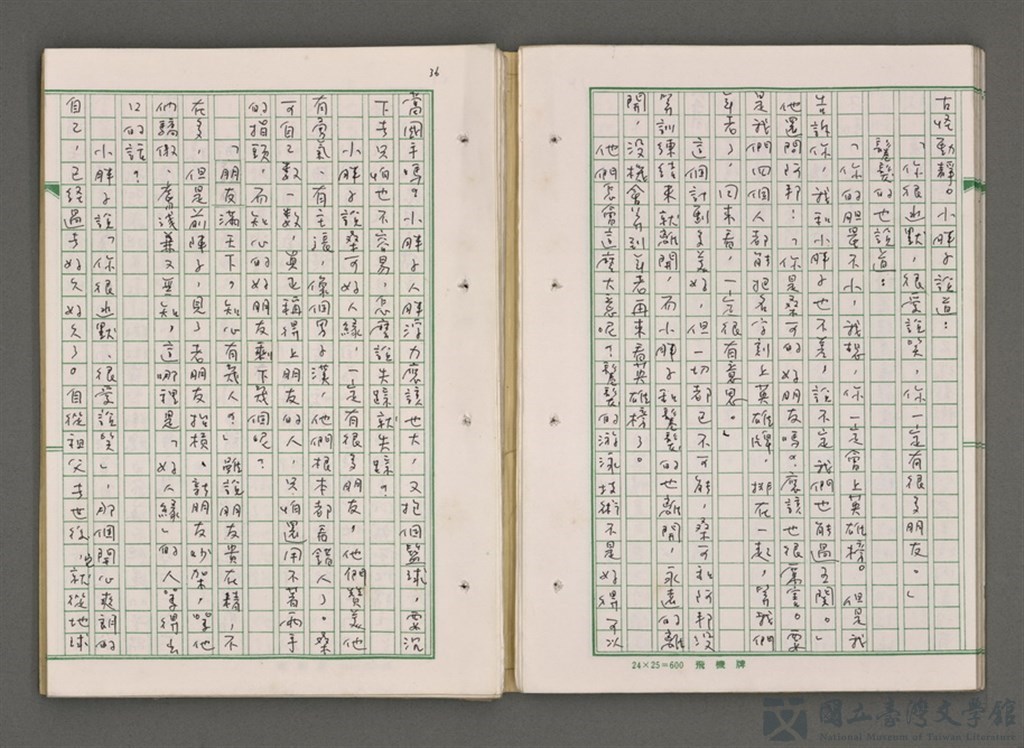 古怪動靜。小胖子說道：
「你很幽默，很愛說笑，你一定有很多朋友。」
鬈髮的也說道：
「你的胆量不小，我想，你一定會上英雄榜。但是我
告訴你，我和小胖子也不差，說不定我們也能過五關。」
他還問阿邦：「你是桑可的好朋友嗎？應該也很厲害。要
是我們四個人都能把名字刻上英雄牌，排在一起，等我們
年老了，回來看，一定很有意思。」
這個計劃多美好，但一切都已不可能，桑可和阿邦沒
等訓練結束就離開，而小胖子和鬈髮的也離開，永遠的離
開，沒機會等到年老再來看英雄榜了。
他們怎會這麼大意呢？鬈髮的游泳技術不是好得可以
36
當國手嗎？小胖子人胖浮力應該也大，又抱個籃球，要沉
下去只怕也不容易，怎麼說失踪就失踪？
小胖子說桑可好人緣，一定有很多朋友，他們贊美他
有勇氣、有主張，像個男子漢，他們根本都看錯人了。桑
可自己數一數，真正稱得上朋友的人，只怕還用不著兩手
的指頭，而知心的好朋友剩下幾個呢？
「朋友滿天下，知心有幾人？」雖說朋友貴在精，不
在多，但是前陣子，見了老朋友抬槓、新朋友吵架，嘴他
們驕傲、膚淺兼又無知，這哪裡是「好人緣」的人等得出
口的話？
小胖子說「你很幽默、很愛說笑」，那個開心爽朗的
自己，已經過去好久好久了。自從祖父去世後，就從地球
24×25=600 飛機牌
國立臺灣文學館
National Museum of Taiwan Literature